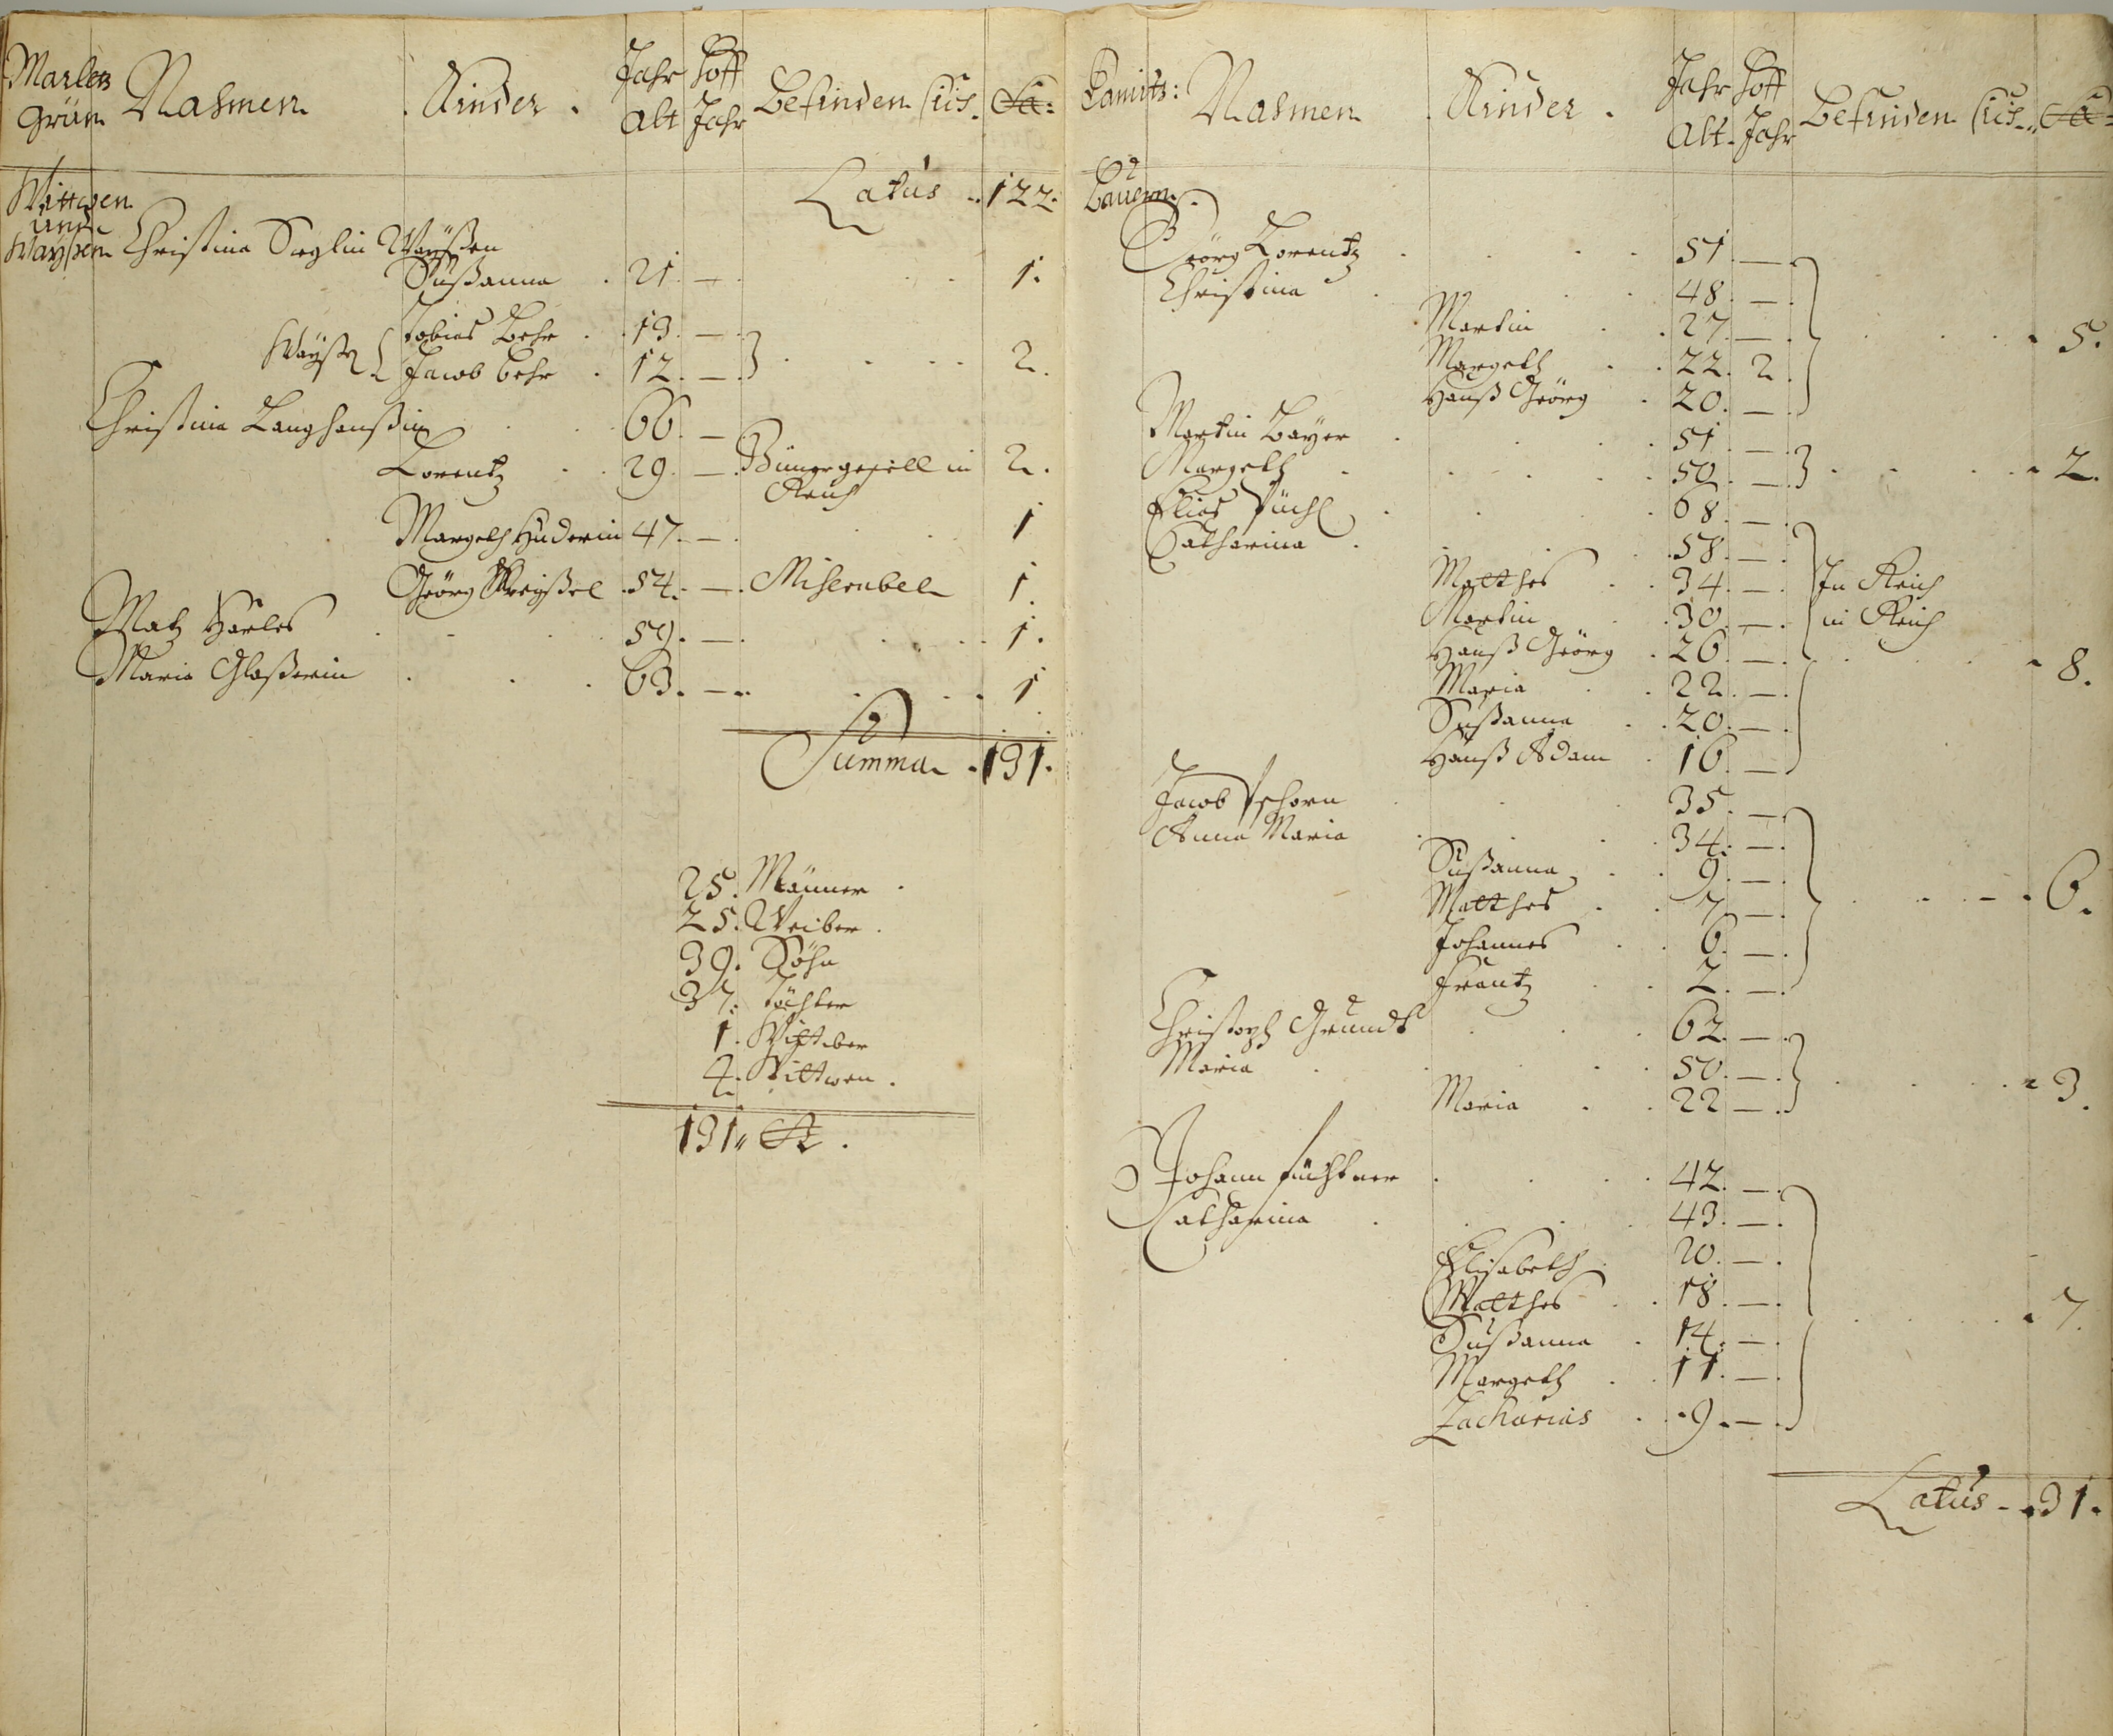 Marles Grün Nahmen Kinder. Jahr Alt Hoff Jahr Befinden sich. Sa:
Latus .. 122.
Wittwen
und
Waÿsen Christina Voglin Waÿsen
Sußanna . 21. — . 1.
Waÿse Tobias Behr . 13. —
Jacob Behr . 12. — . 2.
Christina Langhanßin . 66. —
Lorentz . 29. — . gesell in 2.
Reich
Margeth Huderin 47. — . 1
Geörg . 54. — . Miserabel 1.
Matz Härles . 59. — . 1.
Maria Glaßerin . 63. — . 1
Summa . 131.
25. Männer.
25. Weiber.
39. Söhn
37. Töchter
1. Wittiber
4. Wittwen.
131 „ Sa.
Nahmen . Kinder . Jahr Alt. Hoff Jahr Befinden sich. Sa:
Bauern.
Geörg Lorentz . 51. —
Christina . 48. —
Martin . 27. — . 5.
Margeth . 22. 2.
Hanß Geörg . 20. —
Martin Baÿer . 51. —
Margeth . 50. — . 2.
Elias . 68. —
Catharina . 58. —
Matthes . 34. — . In Reich
Martin . 30. — . in Reich
Hanß Geörg . 26. — . 8.
Maria . 22. —
Sußanna . 20. —
Hanß Adam . 16. —
Jacob . 35. —
Anna Maria . 34. —
Sußanna . 9. —
Matthes . 7. — . 6.
Johannes . 6. —
Frantz . 2. —
Christoph Grundt . 62. —
Maria . 50. — . 3.
Maria . 22 —
Johann Füchtner . 42. —
Catharina . 43. —
Elisabeth . 20. —
Matthes . 18. — . 7.
Sußanna . 14. —
Margeth . 11. —
Zacharias . 9. —
Latus - . 31.